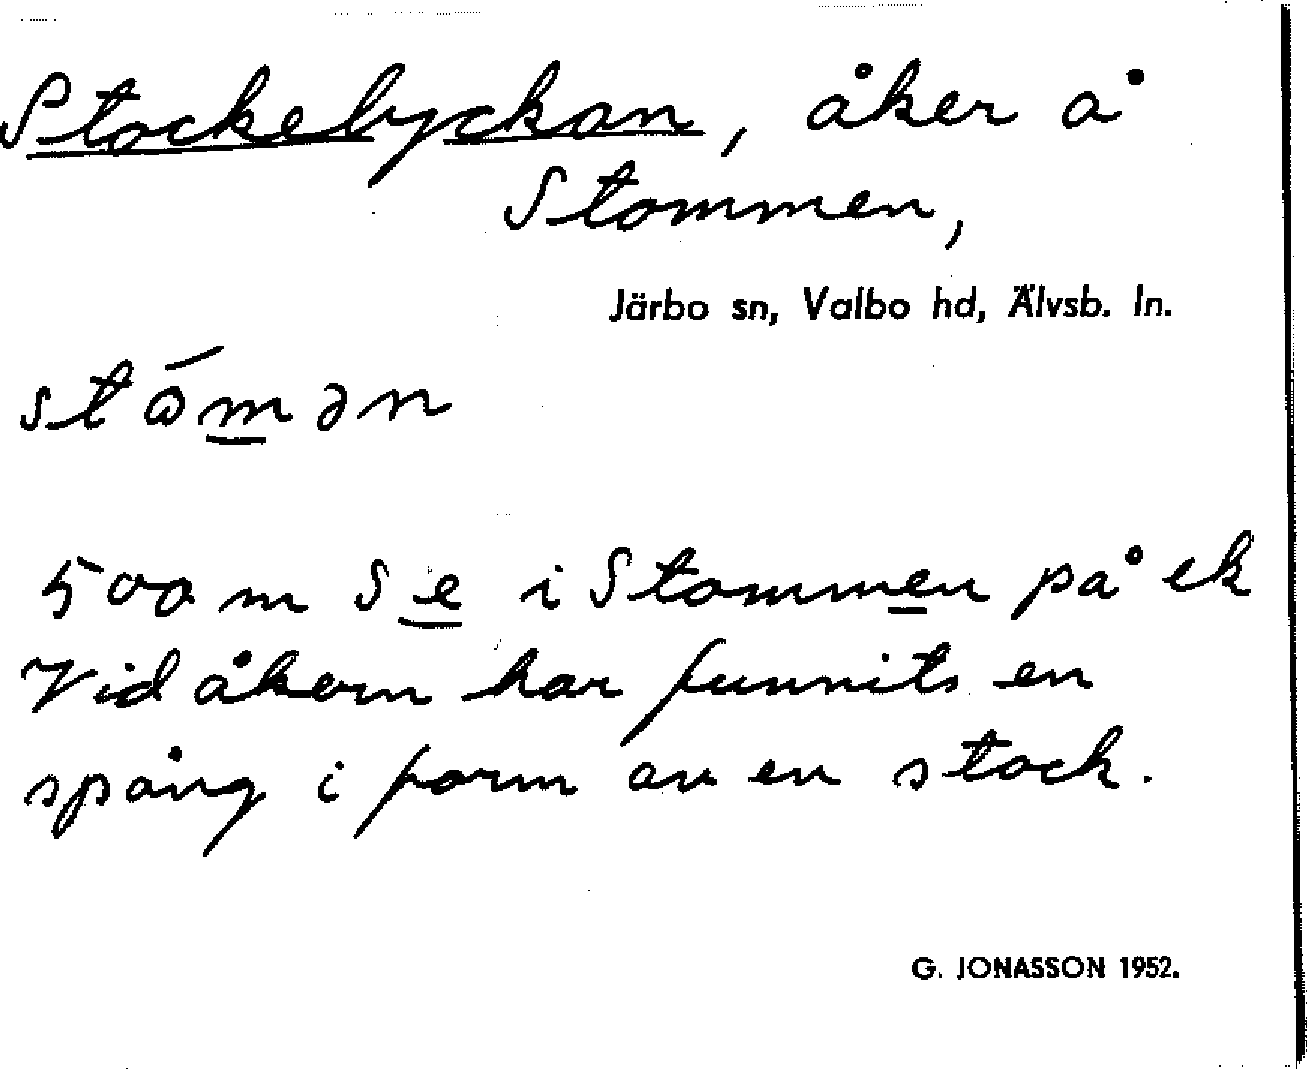 Stockelyckan, åker å
Stommen,
Järbo sn, Valbo hd, Älvsb. ln.
500 m S e i Stommen på ek
Vid åkern har funnits en
spång i form av en stock.
G. JONASSON 1952.